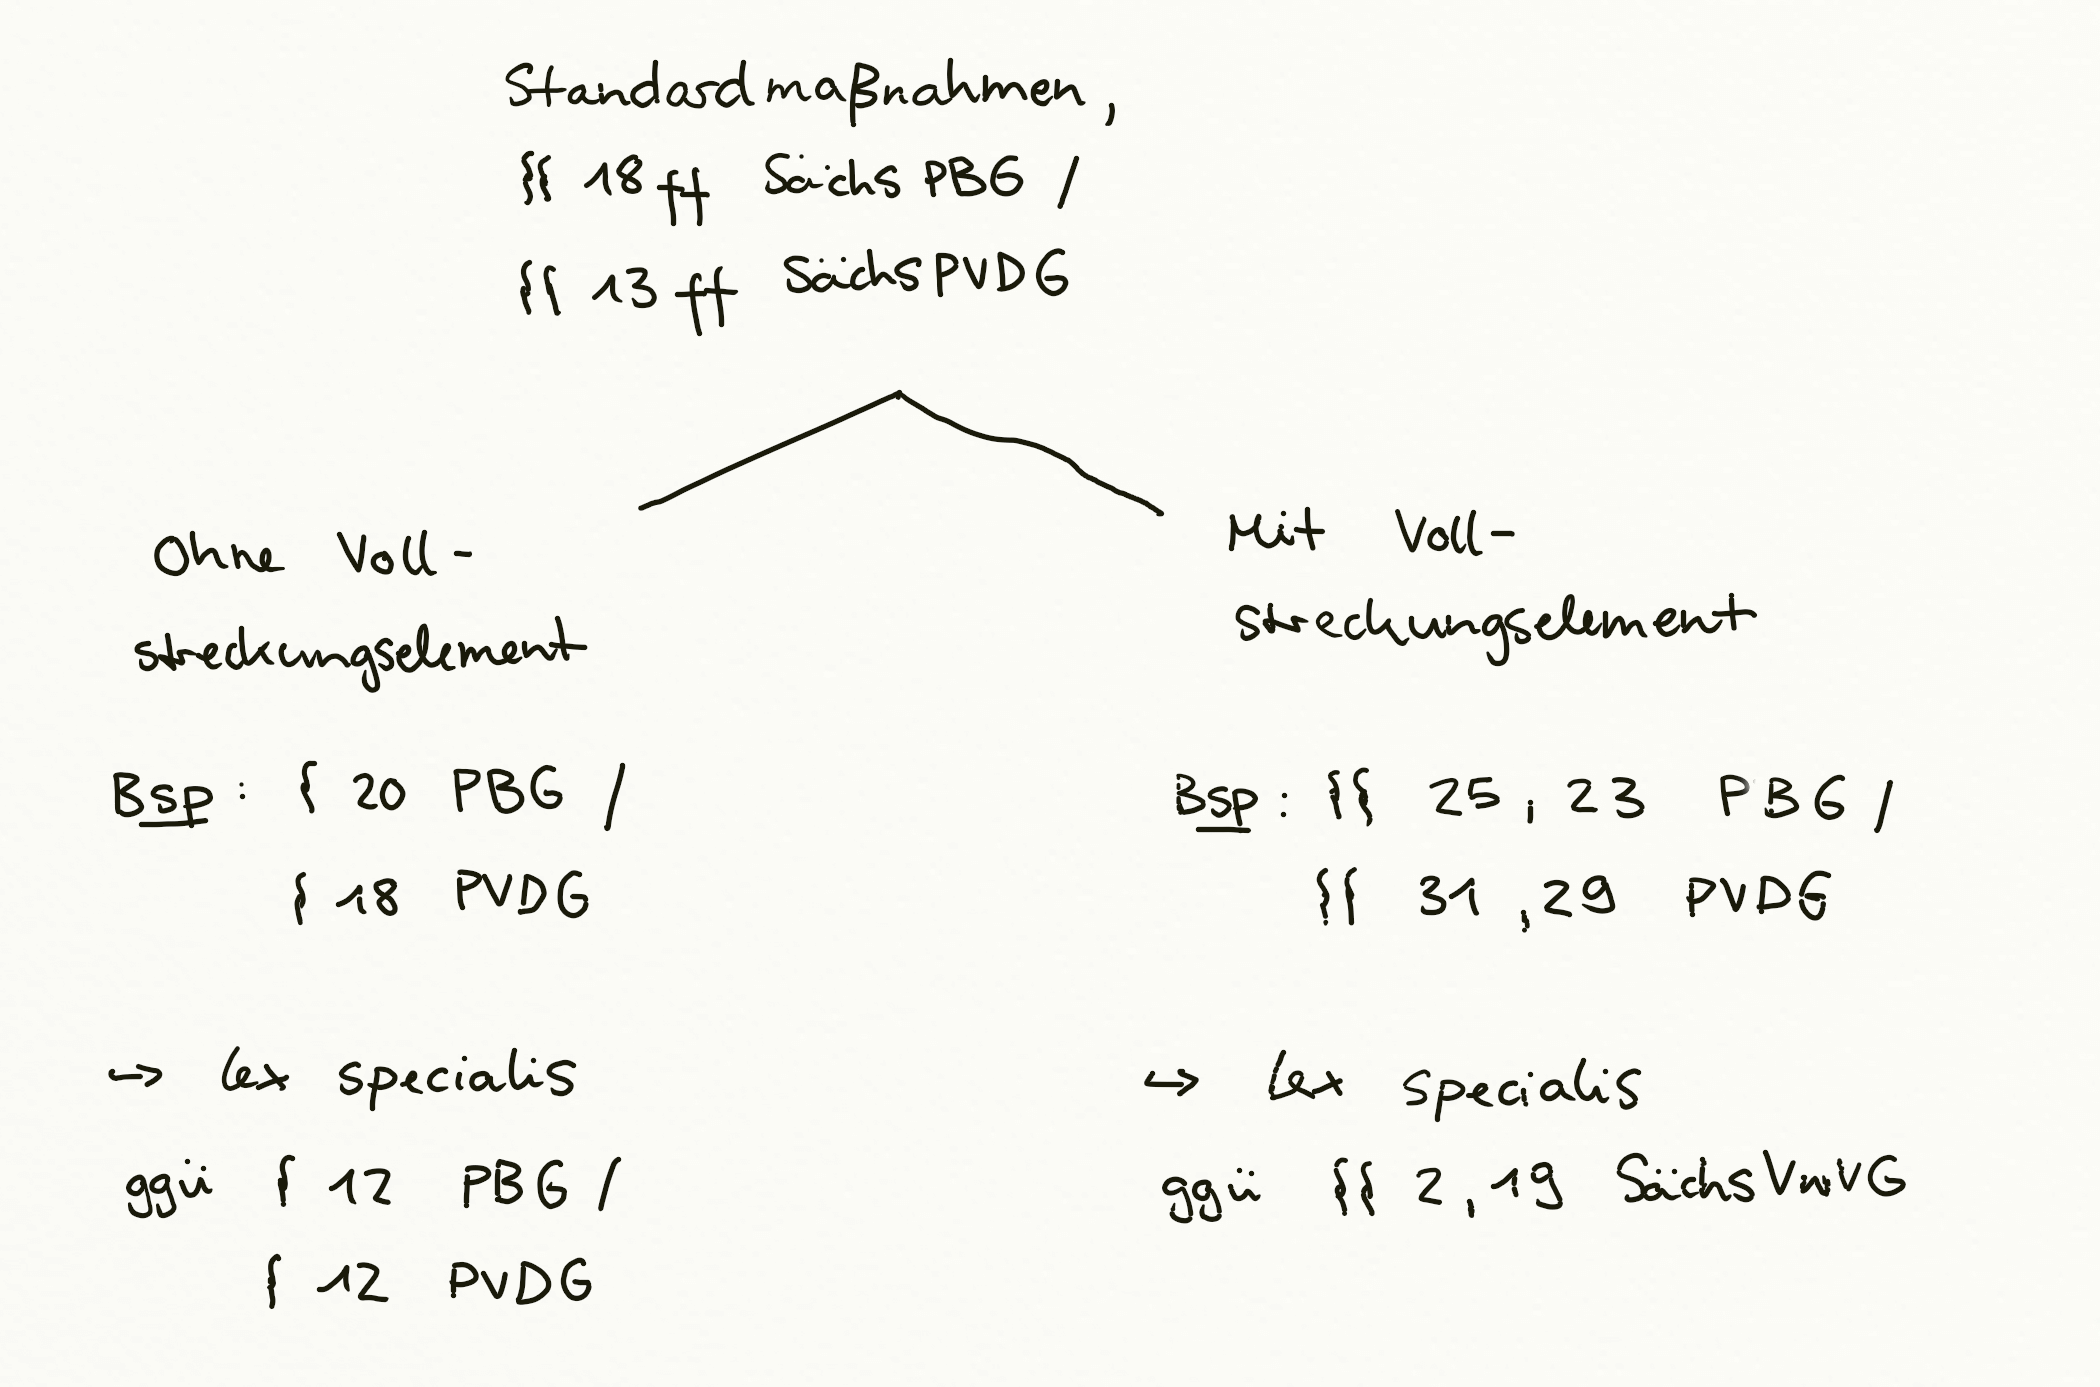 Standardmaßnahmen,
§§ 18 ff SächsPBG /
§§ 13 ff SächsPVDG
Ohne Voll-
streckungselement
Bsp: § 20 PBG /
§ 18 PVDG
→ lex specialis
ggü § 12 PBG /
§ 12 PVDG
Mit Voll-
streckungselement
Bsp: §§ 25, 23 PBG /
§§ 31, 29 PVDG
→ lex specialis
ggü §§ 2, 19 SächsVwVG